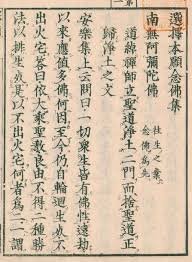 第一
選擇本願念佛集
南無阿彌陀佛 往生之業念佛為先
道綽禪師立聖道淨土二門而捨聖道正
歸淨土之文
安樂集上云問曰一切衆生皆有佛性遠劫
以來應值多佛何因至今仍自輪迴生死不
出火宅答曰依大乘聖教良由不得二種勝
法以排生死是以不出火宅何者爲二一謂